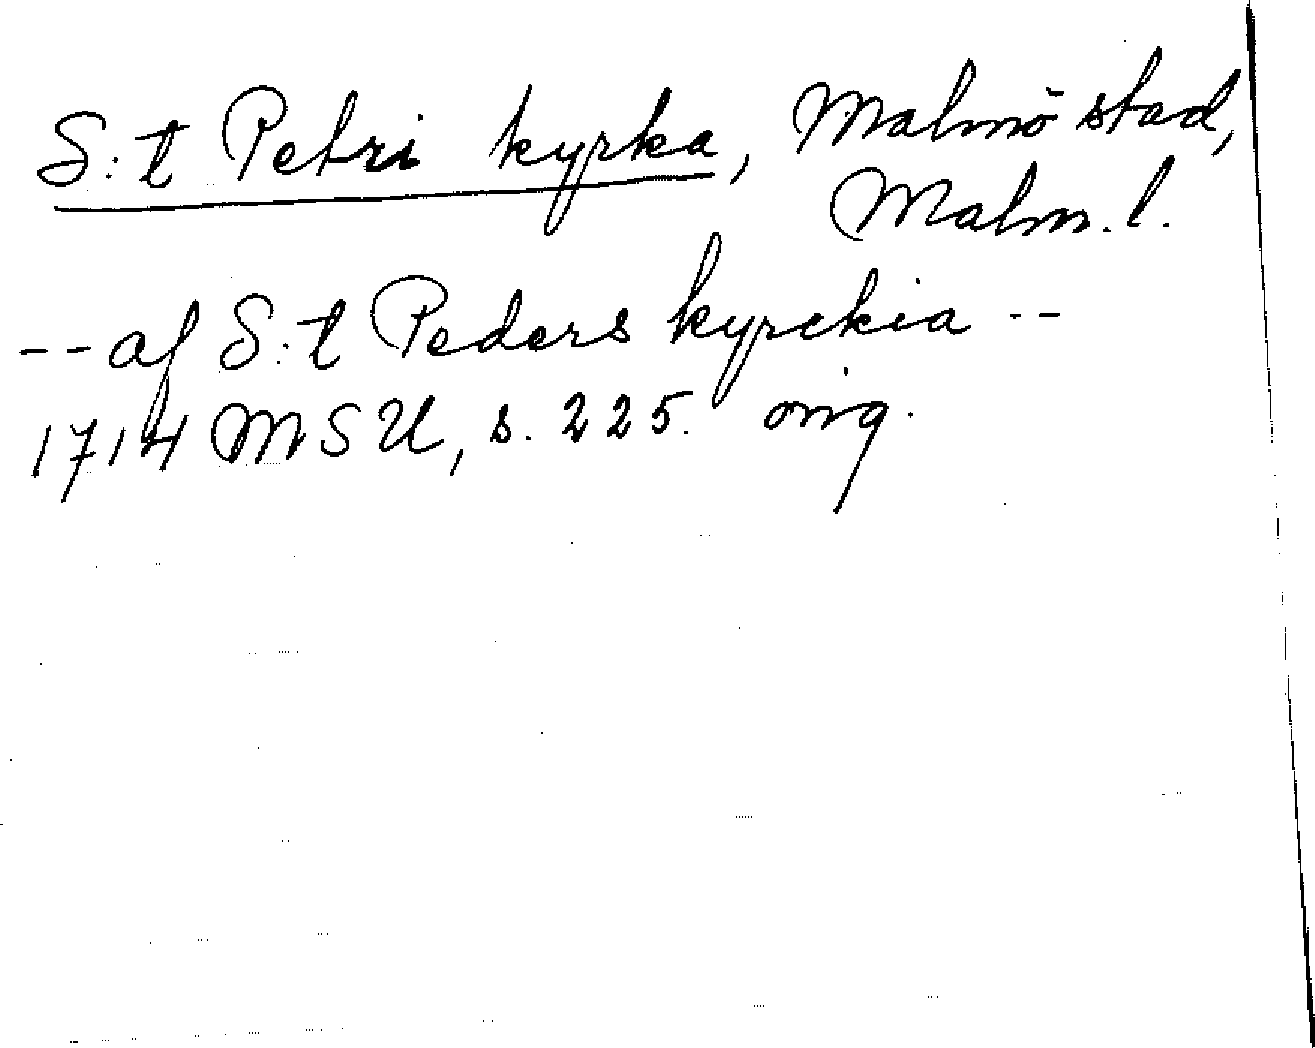 S:t Petri kyrka, Malmö stad,
Malm. l.
-- af S:t Peders kyrckia --
1714 MSU, s. 225. orig.